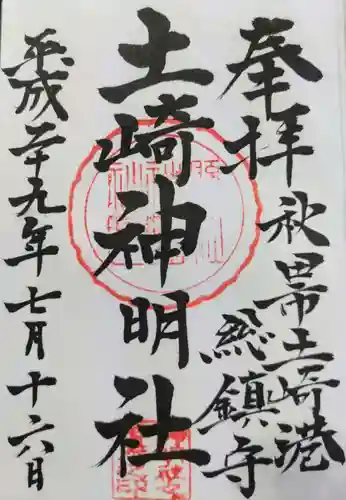 奉拝
秋田市土崎港
総鎮守
土崎神明社
平成二十九年七月十六日